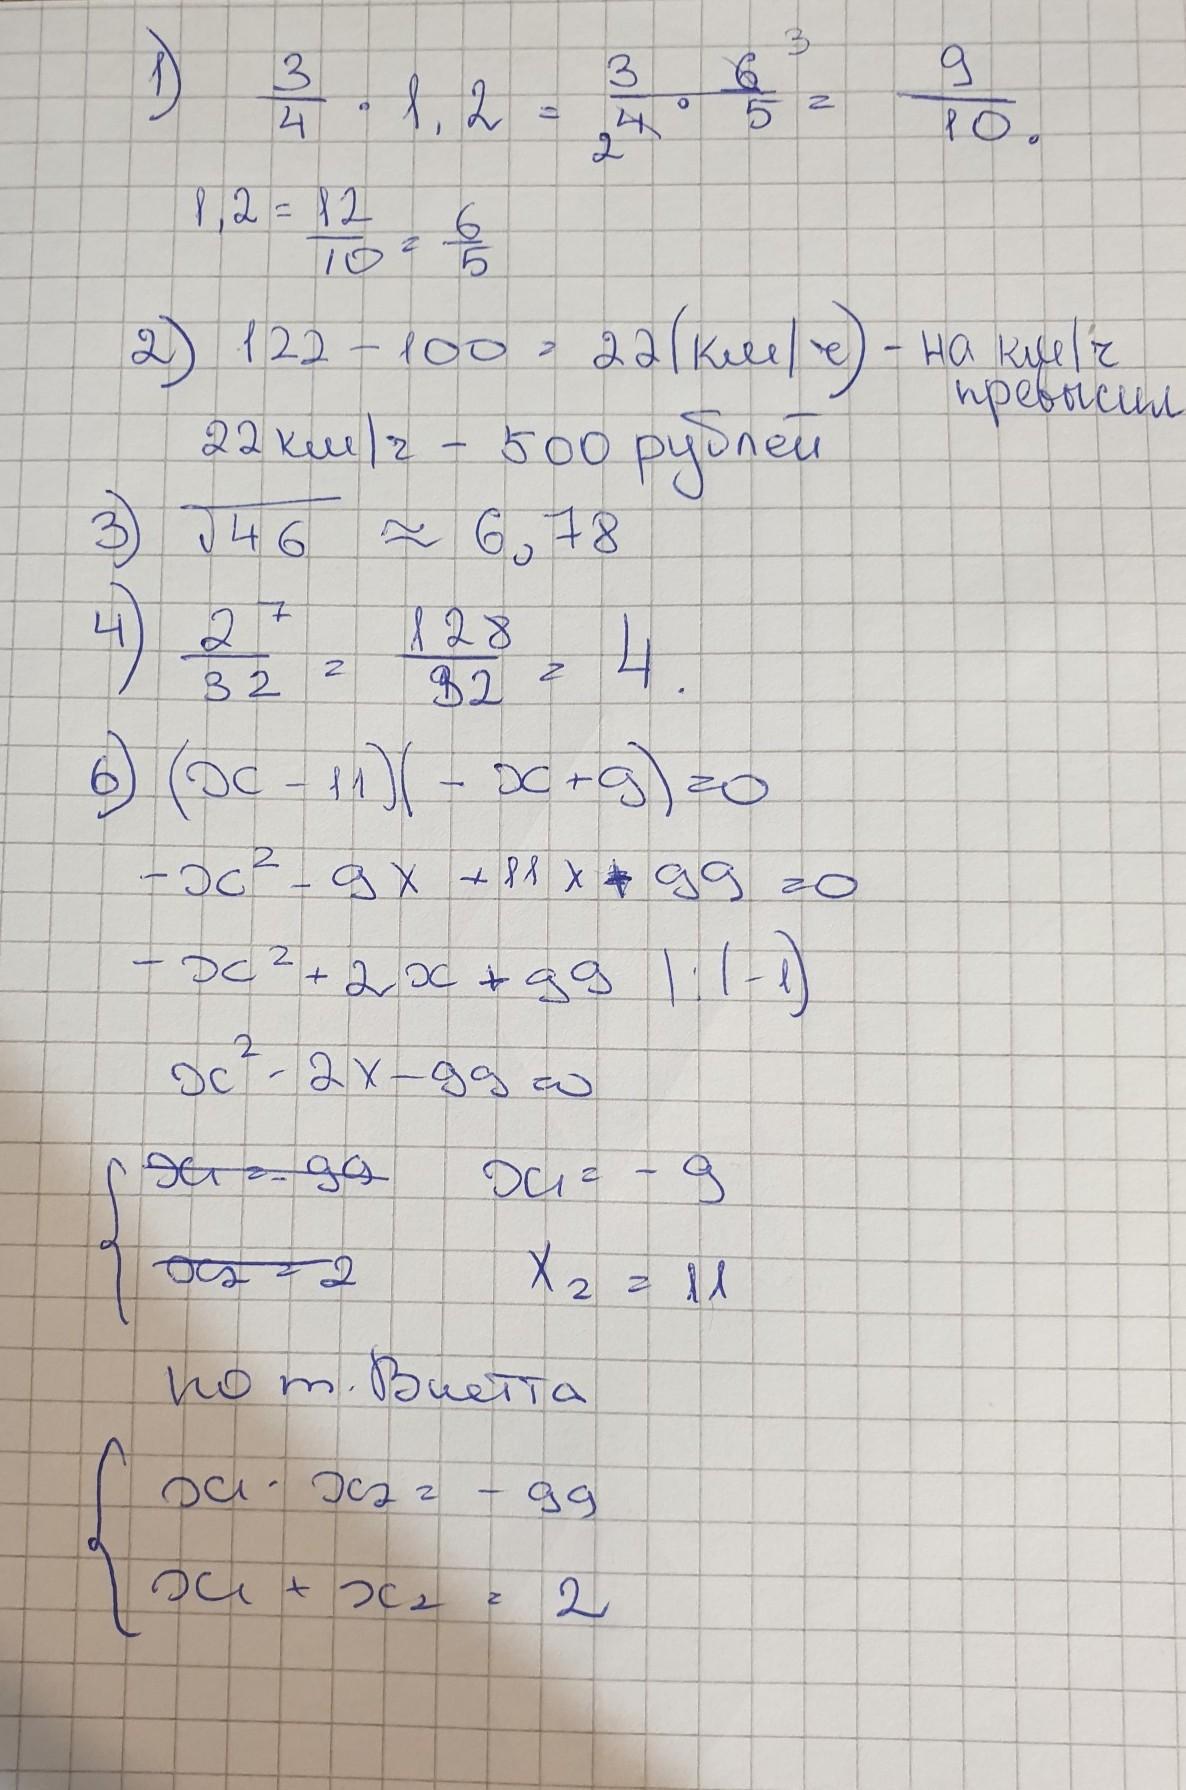 1) 3/4 · 1,2 = 3/4 2 · 6/5 3 = 9/10.
1,2 = 12/10 = 6/5
2) 122 - 100 = 22 (км/ч) - на км/ч
превысил
22 км/ч - 500 рублей
3) √46 ≈ 6,78
4) 2⁷/32 = 128/32 = 4.
6) (x - 11)(- x + 9) = 0
-x² - 9x + 11x + 99 = 0
-x² + 2x + 99 |:(-1)
x² - 2x - 99 = 0
x₁ = -99 x₁ = - 9
x₂ = 2 x₂ = 11
по т. Виетта
x₁ · x₂ = - 99
x₁ + x₂ = 2